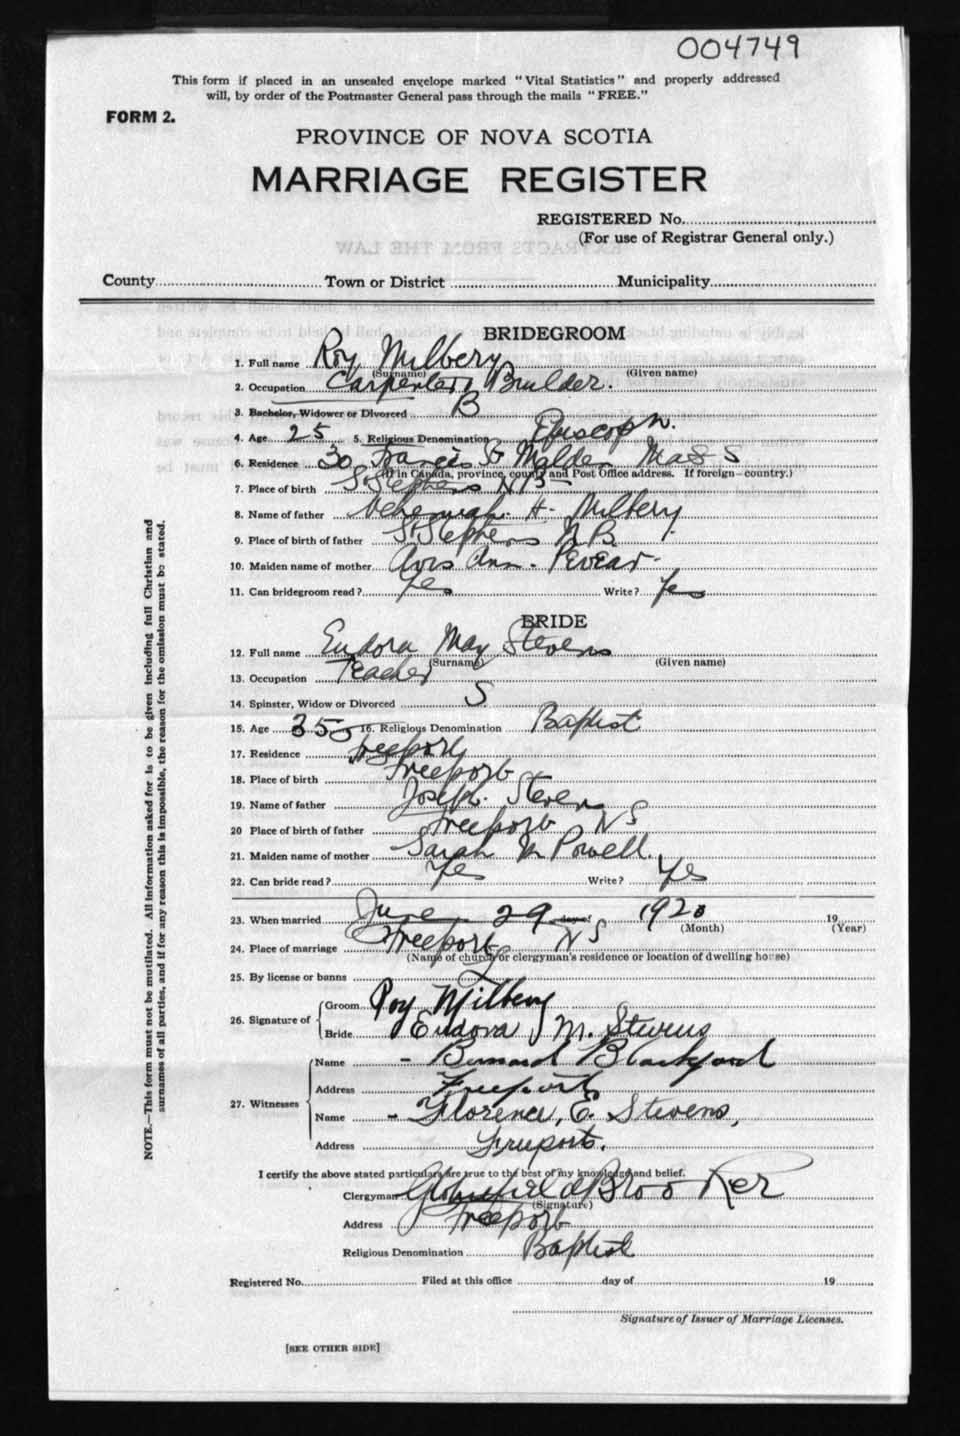 004749
This form if placed in an unsealed envelope marked "Vital Statistics" and properly addressed
will, by order of the Postmaster General pass through the mails "FREE."
FORM 2.
PROVINCE OF NOVA SCOTIA
MARRIAGE REGISTER
REGISTERED No.
(For use of Registrar General only.)
EXTRACTS FROM THE LAW
County Town or District Municipality
BRIDEGROOM
1. Full name Roy Milbery
(Surname) (Given name)
2. Occupation Carpenter Builder.
3. Bachelor, Widower or Divorced B
4. Age 25 5. Religious Denomination Episcopn.
6. Residence 30 Francis St Malden Mass
(If in Canada, province, county and Post Office address. If foreign—country.)
7. Place of birth St Stephens NB
8. Name of father Nehemiah H. Milbery
9. Place of birth of father St Stephens N.B.
10. Maiden name of mother Avis Ann. Pevear
11. Can bridegroom read? Yes Write? Yes
BRIDE
12. Full name Eudora May Stevens
(Surname) (Given name)
13. Occupation Teacher
14. Spinster, Widow or Divorced S
15. Age 35 16. Religious Denomination Baptist
17. Residence Freeport
18. Place of birth Freeport
19. Name of father Joseph Stevens
20 Place of birth of father Freeport NS
21. Maiden name of mother Sarah M Powell.
22. Can bride read? Yes Write? Yes
23. When married June 29 days! 1920 19
(Month) (Year)
24. Place of marriage Freeport NS
(Name of church or clergyman's residence or location of dwelling house)
25. By license or banns L
26. Signature of Groom Roy Milbery
Bride Eudora M. Stevens
27. Witnesses
Name - Bernard Blackford
Address Freeport
Name - Florence, E. Stevens,
Address Freeport.
I certify the above stated particulars are true to the best of my knowledge and belief.
Clergyman Brooker
(Signature)
Address Freeport
Religious Denomination Baptist
Registered No. Filed at this office day of 19
Signature of Issuer of Marriage Licenses.
[SEE OTHER SIDE]
NOTE.—This form must not be mutilated. All information asked for is to be given including full Christian and
surnames of all parties, and if for any reason this is impossible, the reason for the omission must be stated.